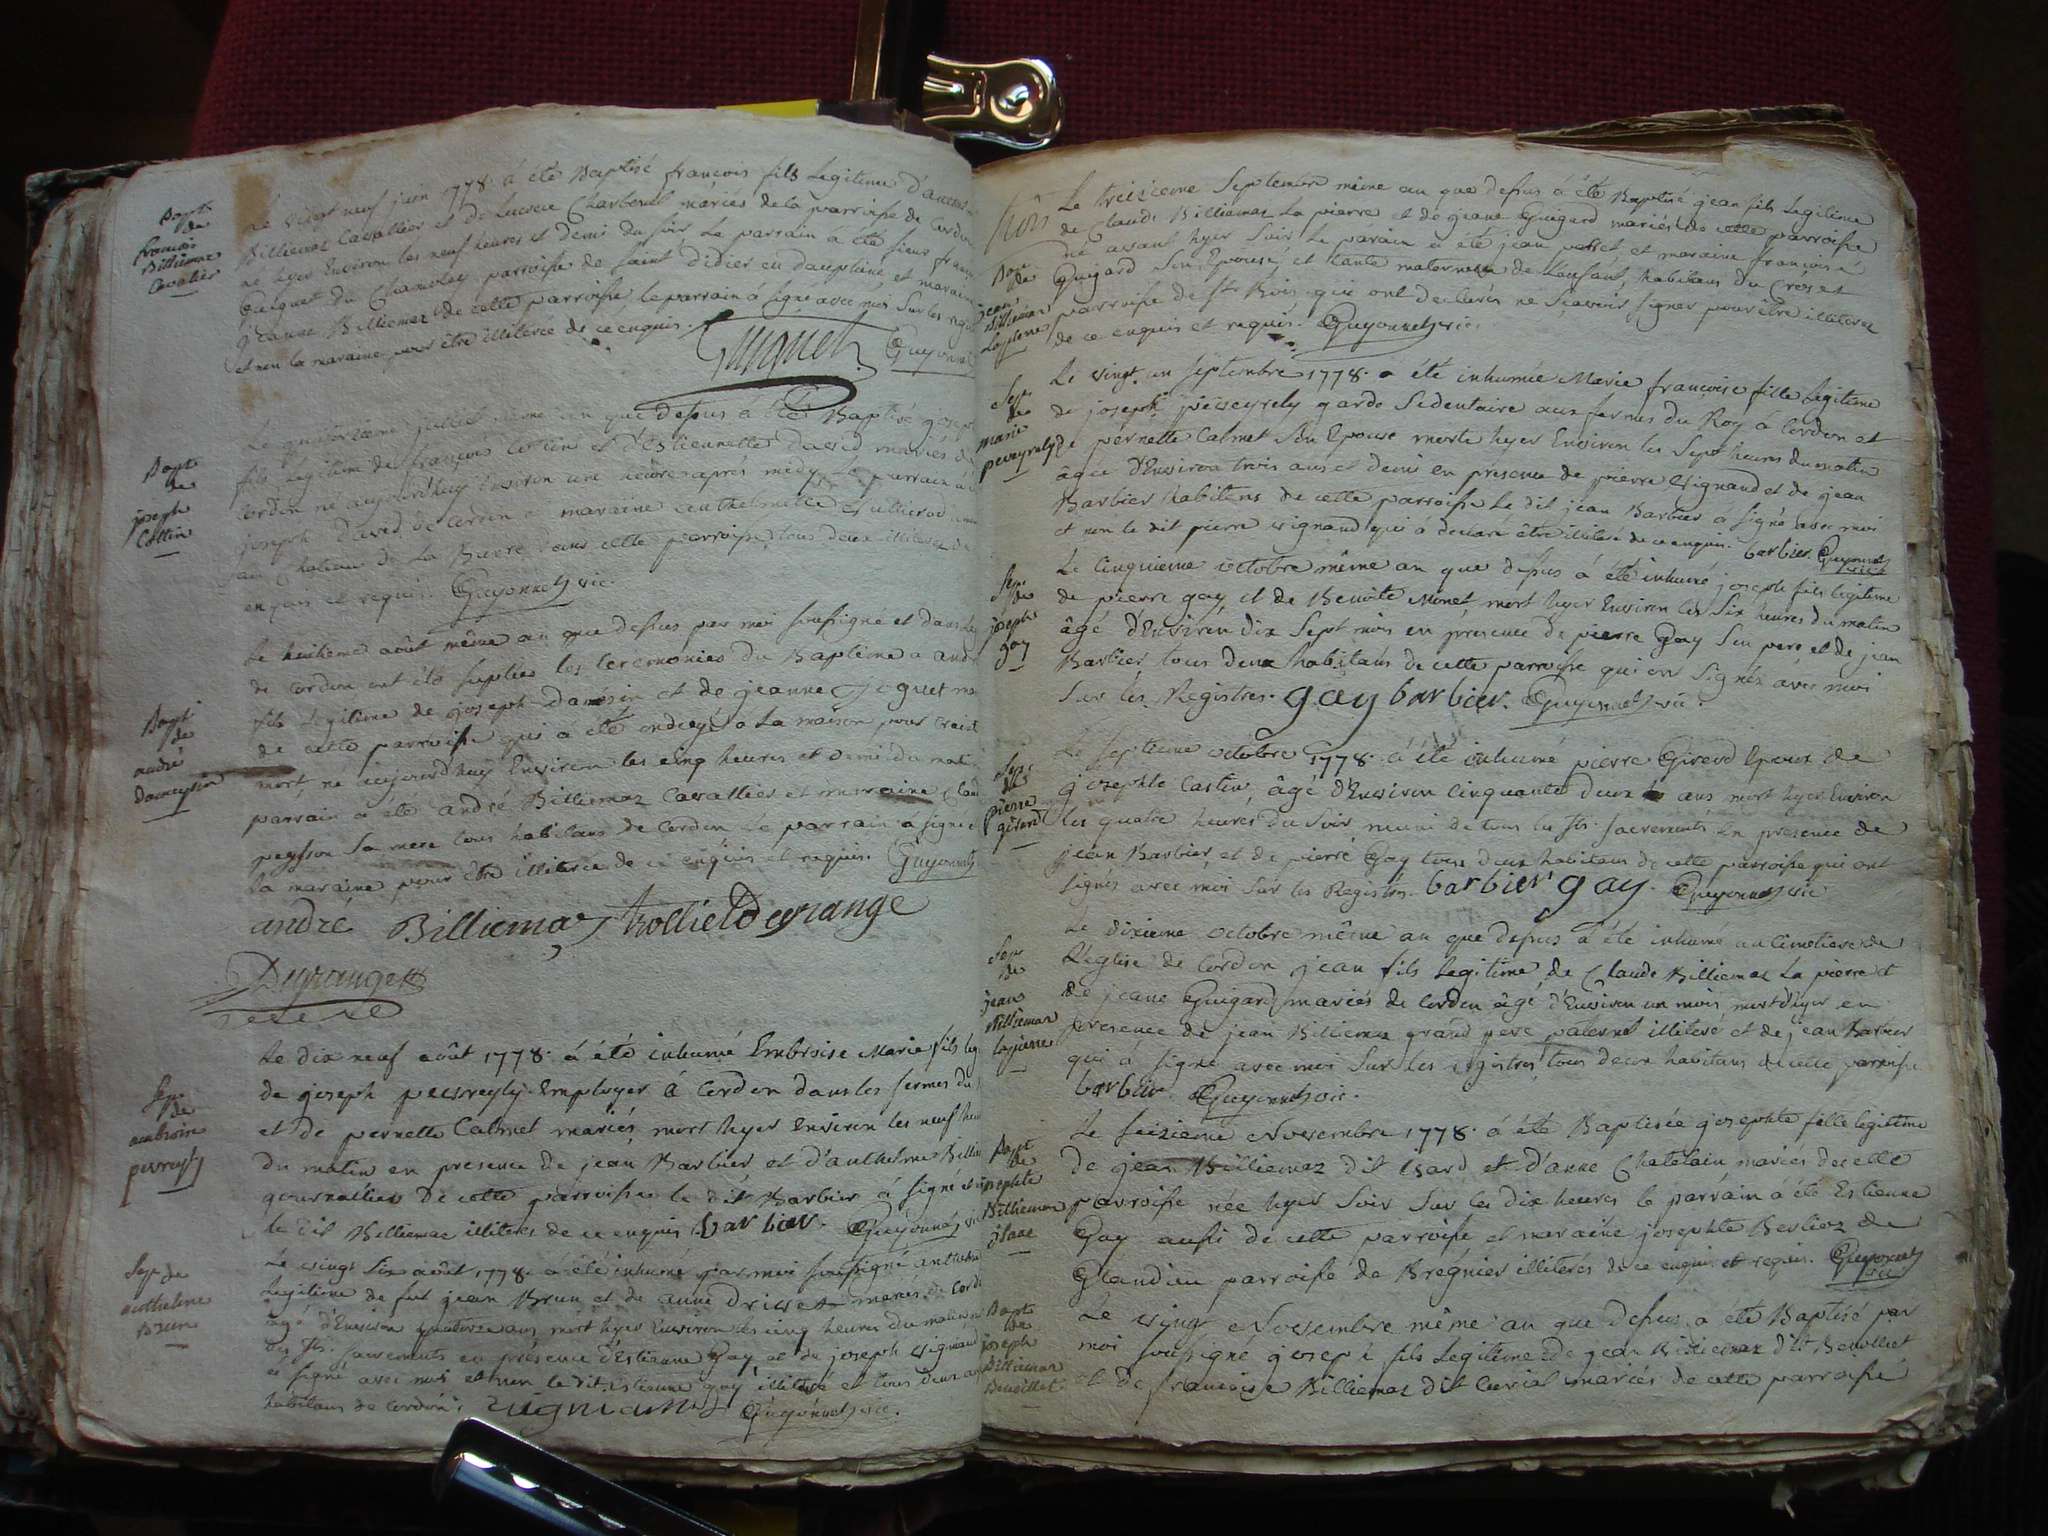 Bapt.
de
francois
Billiemaz
Cavalier
Le vingt neuf juin 1778. à été Baptisé francois fils Legitime
Billiemaz Cavallier et de Lucrece Charbonel mariés de la parroisse de Cordon
né hyer Environ les neuf heures et demi du soir Le parrain à été sieur
Guiguet du parroisse de saint Didier en dauphiné et maraine
jeanne Billiemaz de cette parroisse, le parrain à signé avec moi sur les
et non la maraine pour être illiterée de ce enquis.
Guiguet Guyonnet
Bapt.
de
joseph
Cottin
Le quatorzieme juillet même an que dessus à été Baptisé joseph
fils Legitime de françois Cottin et d'Estiennette david mariés
Cordon né aujourd'huy Environ une heure après midy Le parrain
joseph david de Cordon et maraine anthelmette
au Chateau de La dans cette parroisse, tous deux illiterés de
enquis et requis. Guyonnet vic.
Bapt.
de
andré
dameysin
Le huitieme août même an que dessus par moi soussigné et dans
de Cordon ont été suplées les Ceremonies du Baptême a andré
fils Legitime de joseph damesin et de jeanne
de cette parroisse qui à été ondoyé a La maison pour
mort, né aujourd'huy Environ les cinq heures et demi du matin
parrain à été andré Billiemaz Cavallier et marraine
peysson sa mere tous habitans de Cordon Le parrain à signé
La maraine pour être illiterée de ce enquis et requis. Guyonnet
andré Billiemaz
Degrange
Sep.
de
ambroise
peyreyly
Le dix neuf août 1778. à été inhumé Embroise Marie fils
de joseph Employer à Cordon dans les fermes du
et de pernette Calmet mariés, mort hyer Environ les neuf
du matin en presence de jean Barbier et d'anthelme
journallier de cette parroisse le dit Barbier à signé et
le dit Billiemaz illiteré de ce enquis. barbier. Guyonnet vic
Sep. de
anthelme
Brun
Le vingt six août 1778. à été inhumé par moi soussigné
Legitime de fut jean Brun et de anne mariés de
âgé d'Environ quatorze ans mort hyer Environ les cinq heures du matin
des Sts. sacrements en présence d'Estienne Gay et de joseph vignand
à signé avec moi et non le dit Estienne gay illiteré et tous deux
habitans de Cordon. Guyonnet vic.
Bap.
de
jean
Billiemaz
Lapierre
Le treizieme Septembre même an que dessus à été Baptisé jean fils Legitime
de Claude Billiemaz La pierre et de jeane Guigard mariés de cette parroisse
né avant hyer soir Le parain a été jean et maraine francoise
Guigard son Epouse, et tante maternelle de L'enfant, habitans du
parroisse de St. Bois qui ont declarés ne sçavoir signer pour être illiterez
de ce enquis et requis. Guyonnet vic.
Sep.
de
marie
peveyrely
Le vingt un septembre 1778. à été inhumée Marie françoise fille Legitime
de joseph garde Sedentaire aux fermes du Roy à Cordon et
de pernette Calmet son Epouse morte hyer Environ les Sept heures du matin
âgée d'Environ trois ans et demi en presence de pierre vignand et de jean
Barbier habitans de cette parroisse le dit jean Barbier à signé avec moi
et non le dit pierre vignand qui à declaré être illiteré de ce enquis. barbier. Guyonnet vic
Sep.
de
joseph
gay
Le Cinquieme octobre même an que dessus à été inhumé joseph fils legitime
de pierre gay, et de Benoite Monet, mort hyer Environ les six heures du matin
âgé d'Environ dix Sept mois en presence de pierre Gay son pere et de jean
Barbier tous deux habitans de cette parroisse qui ont signés avec moi
sur les Registres. gay barbier. Guyonnet vic.
Sep.
de
pierre
girerd
Le septieme octobre 1778. à été inhumé pierre Girerd Epoux de
josephte Castin, âgé d'Environ Cinquante deux ans mort hyer Environ
les quatre heures du soir, muni de tous les sts. sacrements En presence de
jean Barbier, et de pierre Gay tous deux habitans de cette parroisse qui ont
signés avec moi sur les Registres. barbier gay. Guyonnet vic
Sep.
de
jean
Billiemaz
lapierre
Le dixieme octobre même an que dessus à été inhumé au Cimetiere de
L'église de Cordon jean fils Legitime de Claude Billiemaz La pierre et
de jeane Guigard mariés de Cordon âgé d'Environ un mois mort hyer en
presence de jean Billiemaz grand pere paternel illiteré et de jean Barbier
qui à signé avec moi sur les registres, tous deux habitans de cette parroisse
barbier. Guyonnet vic.
Bapt.
de
josephte
Billiemaz
Le seizieme Novembre 1778. à été Baptisée josephte fille legitime
de jean Billiemaz dit et d'anne Chatelain mariés de cette
parroisse née hyer soir sur les dix heures le parrain à été Estienne
Gay aussi de cette parroisse et maraine josephte Berlioz de
Glandieu parroisse de Brégnier illiterés de ce enquis et requis. Guyonnet
vic
Bapt.
de
joseph
Billiemaz
Benoillet
Le vingt Novembre même an que dessus à été Baptisé par
moi soussigné joseph fils Legitime de jean Billiemaz dit Benoillet
et de francoise Billiemaz dit mariés de cette parroisse